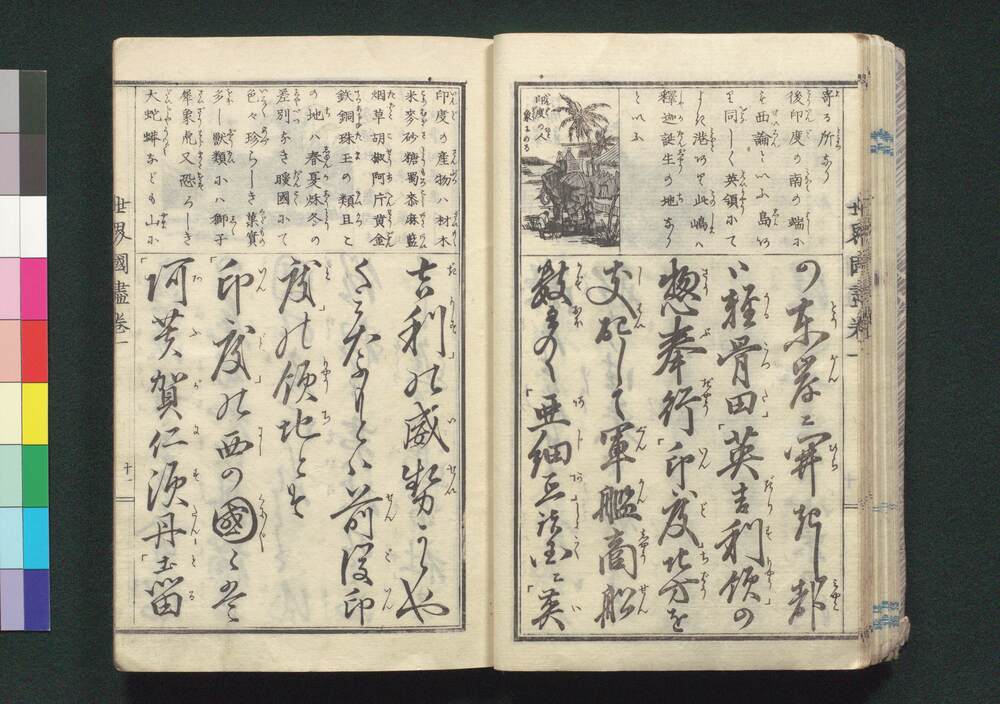 寄る所なり
後印度の南の端に
西論といふ島あり
同しく英領にて
よき港あり此嶋ハ
釋迦誕生の地なり
といふ
印度の人
象にのる
の東岸に開けし都
ハ「輕骨田」英吉利領の
惣奉行「印度」地方を
支配して軍艦商船
數多く「亜細亜」諸国に英
世界國盡巻一
十
印度の産物ハ材木
米麥砂糖蜀黍麻藍
烟草胡椒阿片黄金
鉄銅珠玉の類且こ
の地ハ春夏秌冬の
差別なき暖國にて
色々珍らしき菓實
多し獣類にハ獅子
犀象虎又恐ろしき
大蛇蟒なども山に
吉利の威勢かゝや
くミなもとハ前後印
度の領地とぞ
「印度」の西の國々は
「阿芙賀仁須丹」「土留
世界國盡巻一
十一